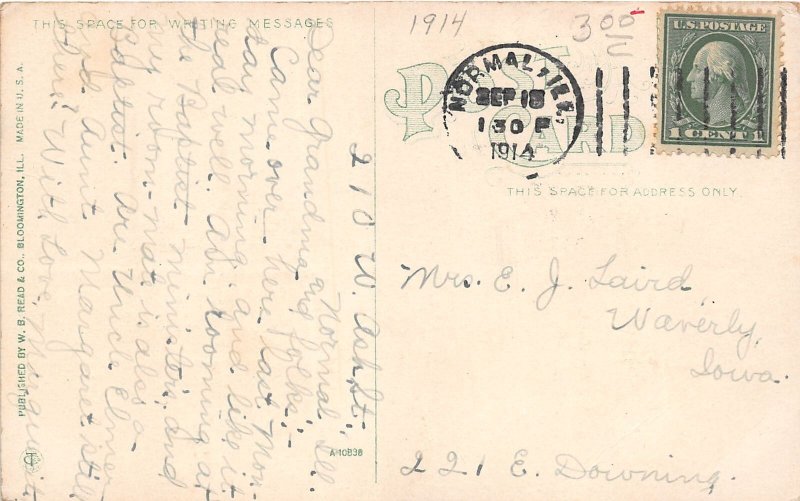 THIS SPACE FOR WRITING MESSAGES
210 W. Ash St.
Normal, Ill.
Dear Grandma and folks:-
Came over here last Mon-
day morning and like it
real well. Am rooming at
the Baptist ministers, and
my room-mate is also a
Baptist. Are Uncle Elmer
and Aunt Margaret still
there? With Love, Marguerite
PUBLISHED BY W. B. READ & CO., BLOOMINGTON, ILL. MADE IN U. S. A.
A-10838
1914
300
POST
CARD
NORMAL, ILL.
SEP 18
1 30 P
1914
U.S. POSTAGE
1 CENT 1
THIS SPACE FOR ADDRESS ONLY.
Mrs. E. J. Laird
Waverly,
Iowa.
221 E. Downing.